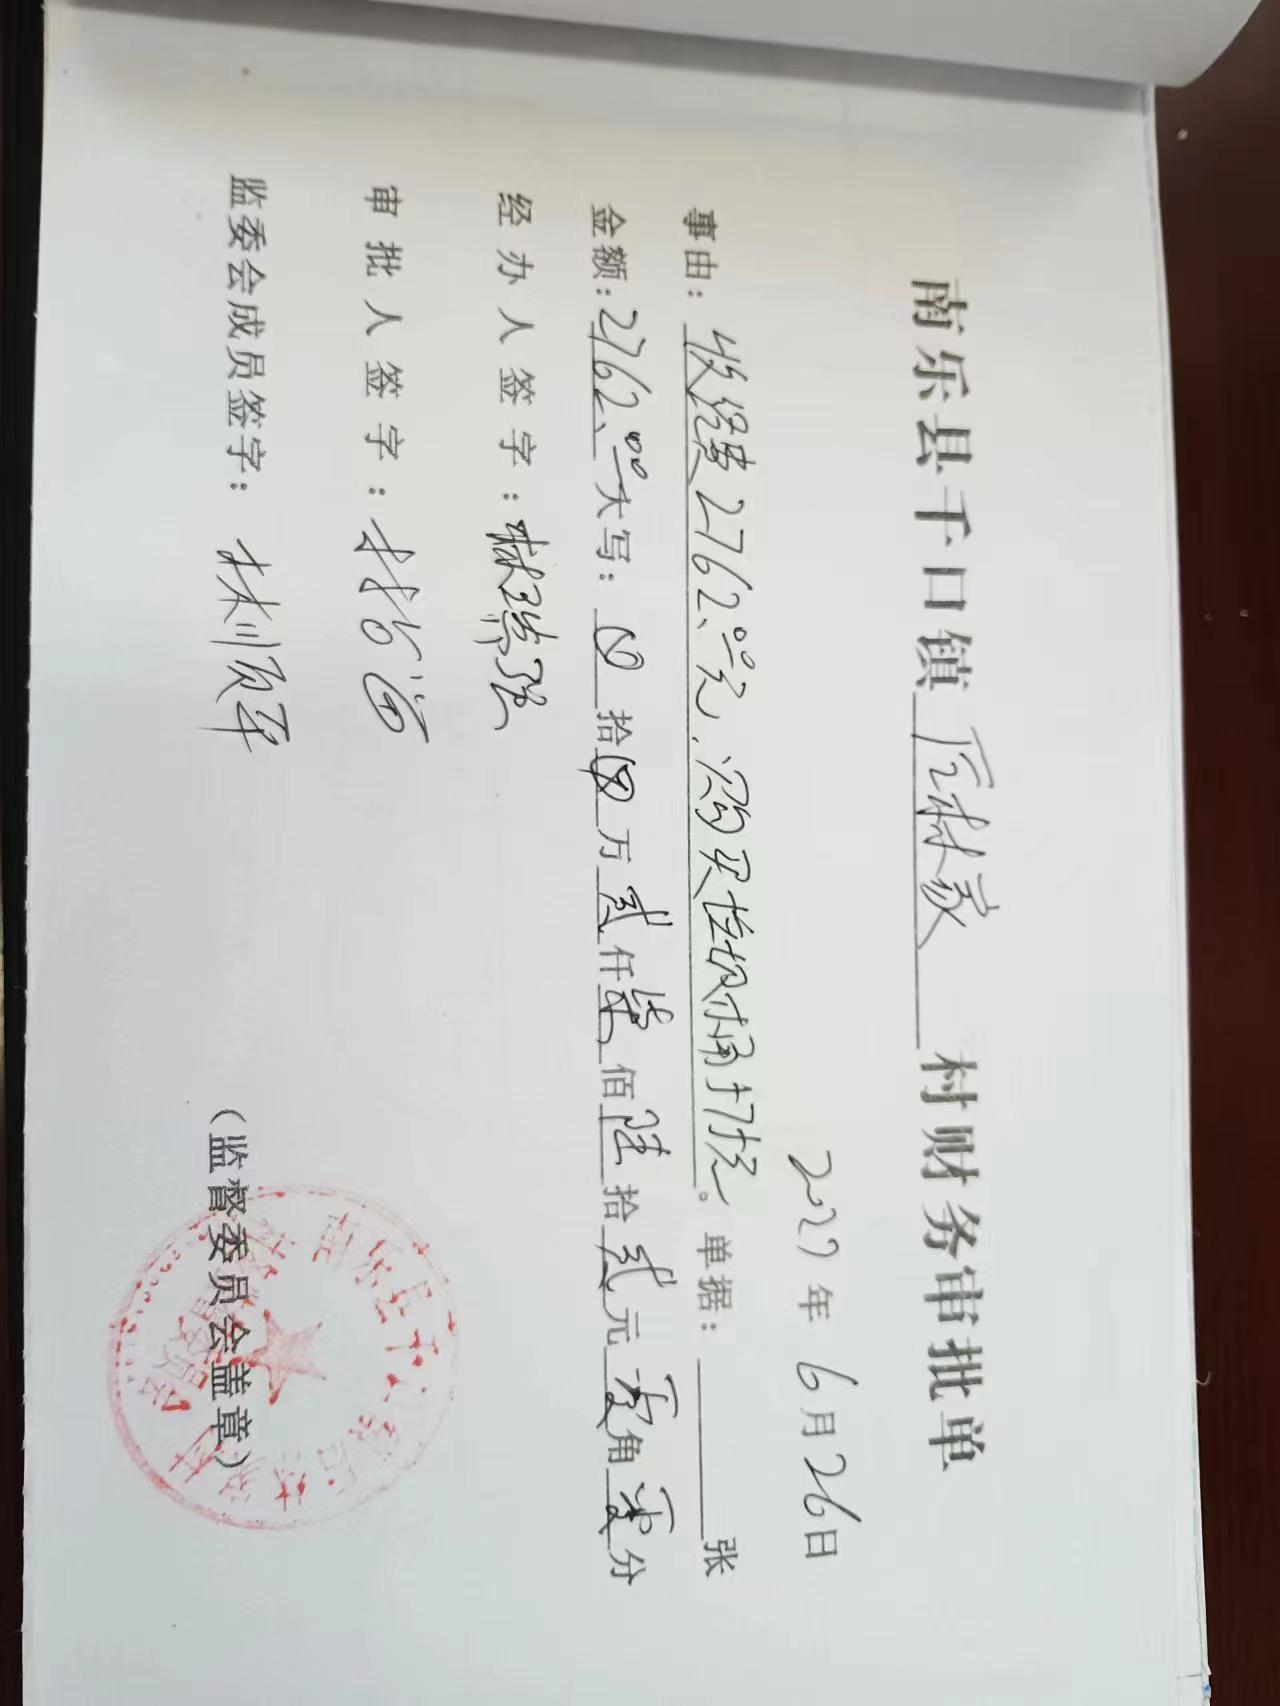 南乐县千口镇后林家村财务审批单
2022年6月26日
事由：收经费2762.00元，购买垃圾桶打坑。单据：张
金额：2762.00大写：⊗拾⊗万贰仟柒佰陆拾贰元零角零分
经办人签字：林瑞强
审批人签字：
监委会成员签字：林顺军
（监督委员会盖章）